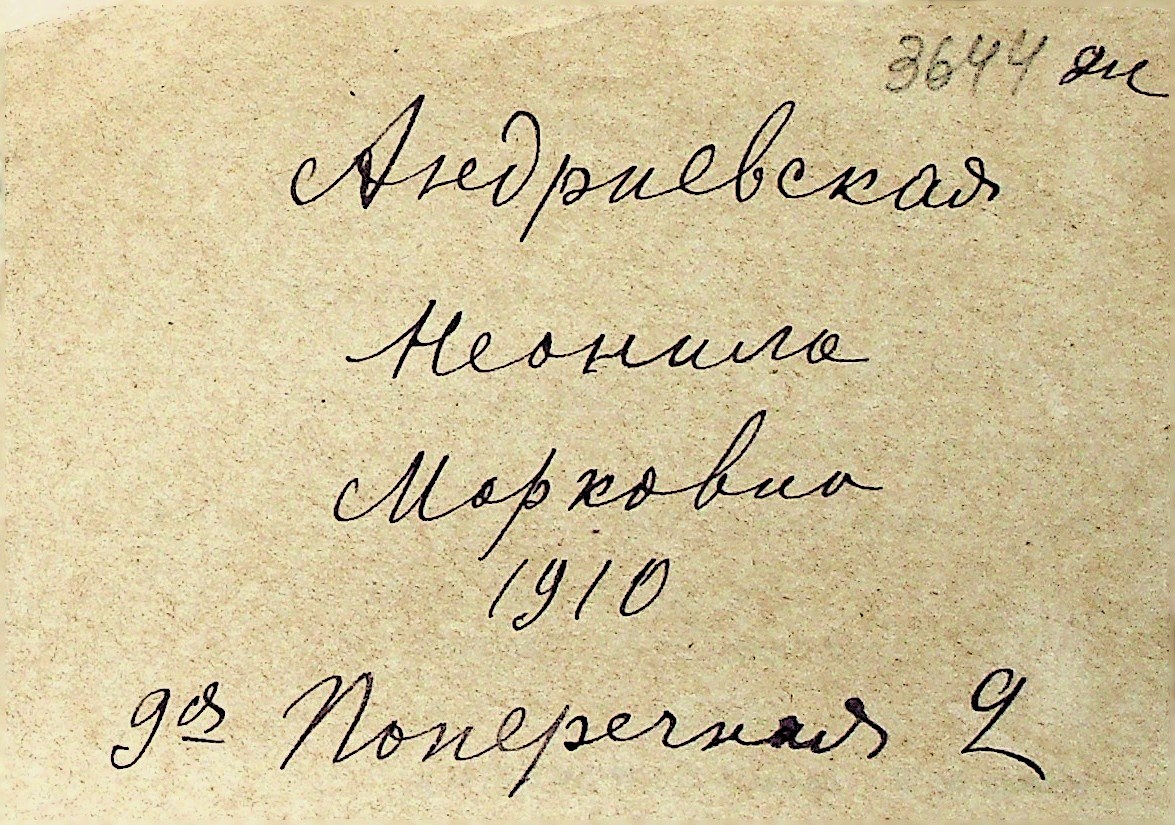 3644 эл
Андриевская
Неонила
Марковна
1910
9ая Поперечная 2